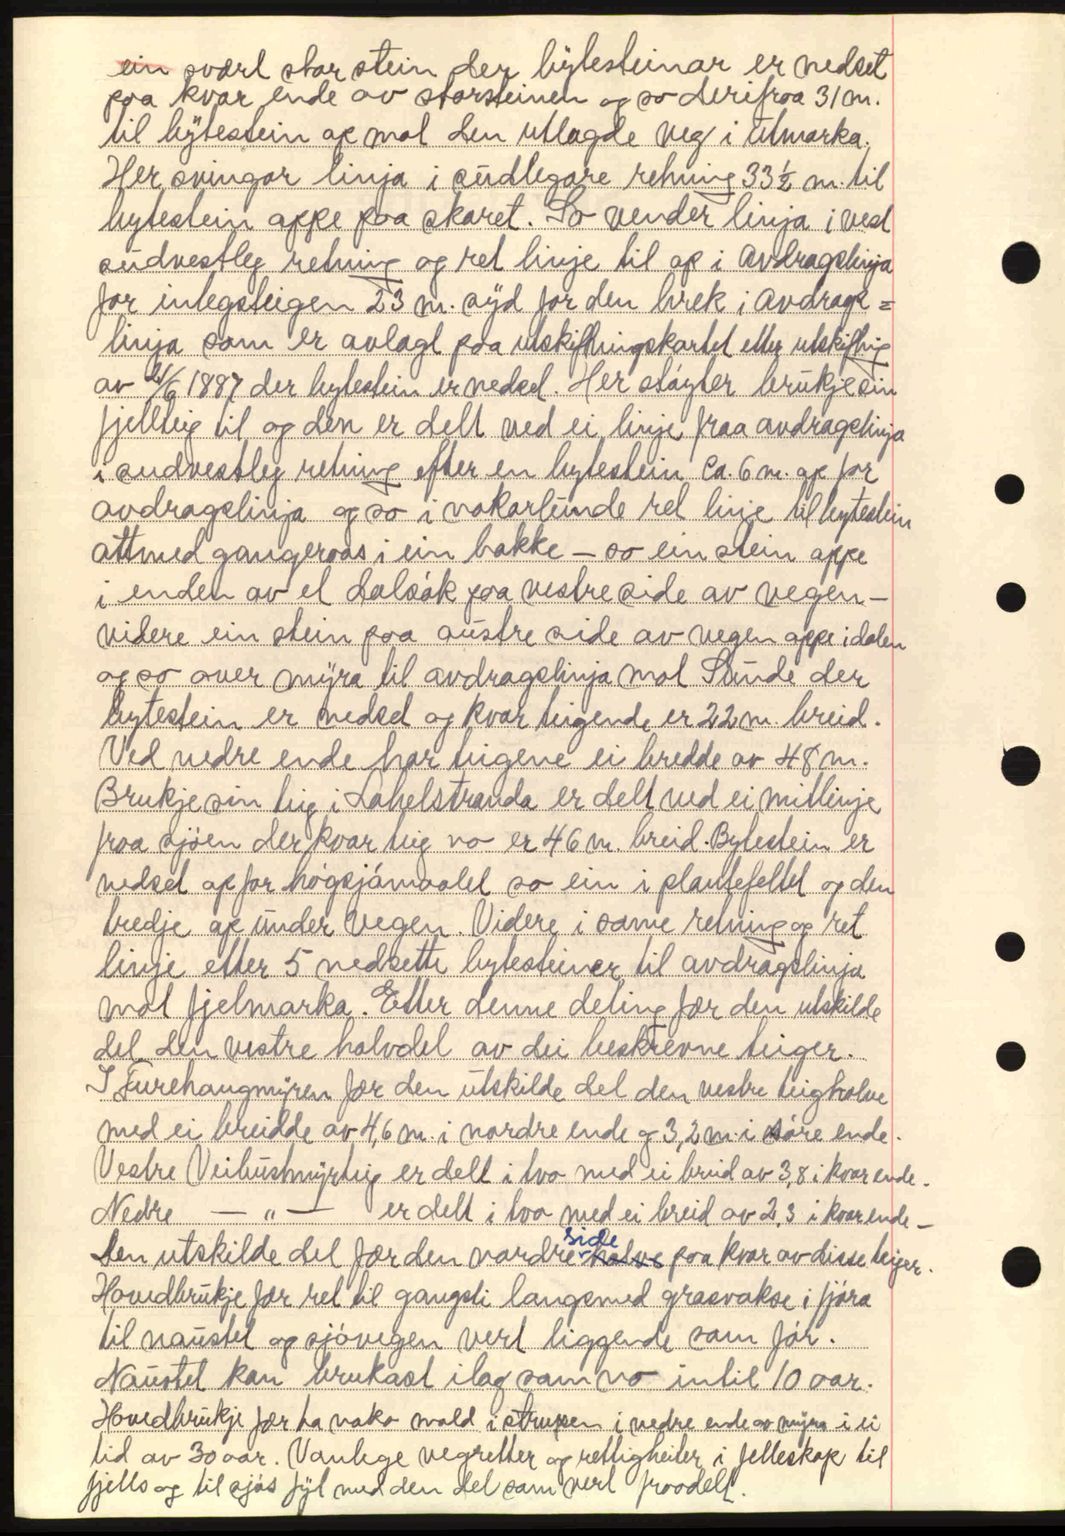 ein svært stor stein der bytesteinar er nedset
paa kvar ende av storsteinen og so derifraa 31 m.
til bytestein op mot den utlagde veg i utmarka.
Her svingar linja i sudlegare retning 33½ m. til
bytestein oppe paa skaret. So vender linja i vest
sudvestleg retning og ret linje til op i avdragslinja
for inlegsteigen 23 m. syd for den brek i avdrags=
linja som er avlagt paa utskiftningskartet etter utskiftnig
av 21/6 1887 der bytestein er nedset. Her støyter brukje sin
fjellteig til og den er delt ved ei linje fraa avdragslinja
i sudvestleg retning efter en bytestein ca. 6 m. op for
avdragslinja og so i nokarlunde ret linje til bytestein
attmed gangeroas i ein bakke – so ein stein oppe
i enden av et dalsøk paa vestre side av vegen –
videre ein stein paa austre side av vegen oppe i dalen
og so over myra til avdragslinja mot Sunde der
bytestein er nedset og kvar teigende er 22 m. breid.
Ved nedre ende har teigene ei bredde av 48 m.
Brukje sin teig i Lahelstranda er delt ved ei mitlinje
fraa sjøen der kvar teig no er 46 m. breid. Bytestein er
nedset op for høgsjømaalet so ein i plantefeltet og den
tredje op under vegen. Videre i same retning og ret
linje etter 5 nedsette bytesteiner til avdragslinja
mot fjelmarka. Etter denne deling fær den utskilde
del den vestre halvdel av dei beskrevne teiger.
I Furehaugmyren fær den utskilde del den vestre teighalve
med ei breidde av 4,6 m. i nordre ende og 3,2 m. i søre ende.
Vestre Veibustmyrteig er delt i tvo med ei breid av 3,8 i kvar ende.
Nedre — „ — er delt i tvo med ei breid av 2,3 i kvar ende –
Den utskilde del fær den nordre side halve paa kvar av disse teiger.
Hovedbrukje fær ret til gangsti langsmed grasvakse i fjøra
til naustet og sjøvegen vert liggende som før.
Naustet kan brukast ilag som no intil 10 aar.
Hovedbrukje fær ta noko mold i strupen i nedre ende av myra i ei
tid av 30 aar. Vanlege vegretter og rettigheiter i felleskap til
fjells og til sjøs fyl med den del som vert fraadelt.